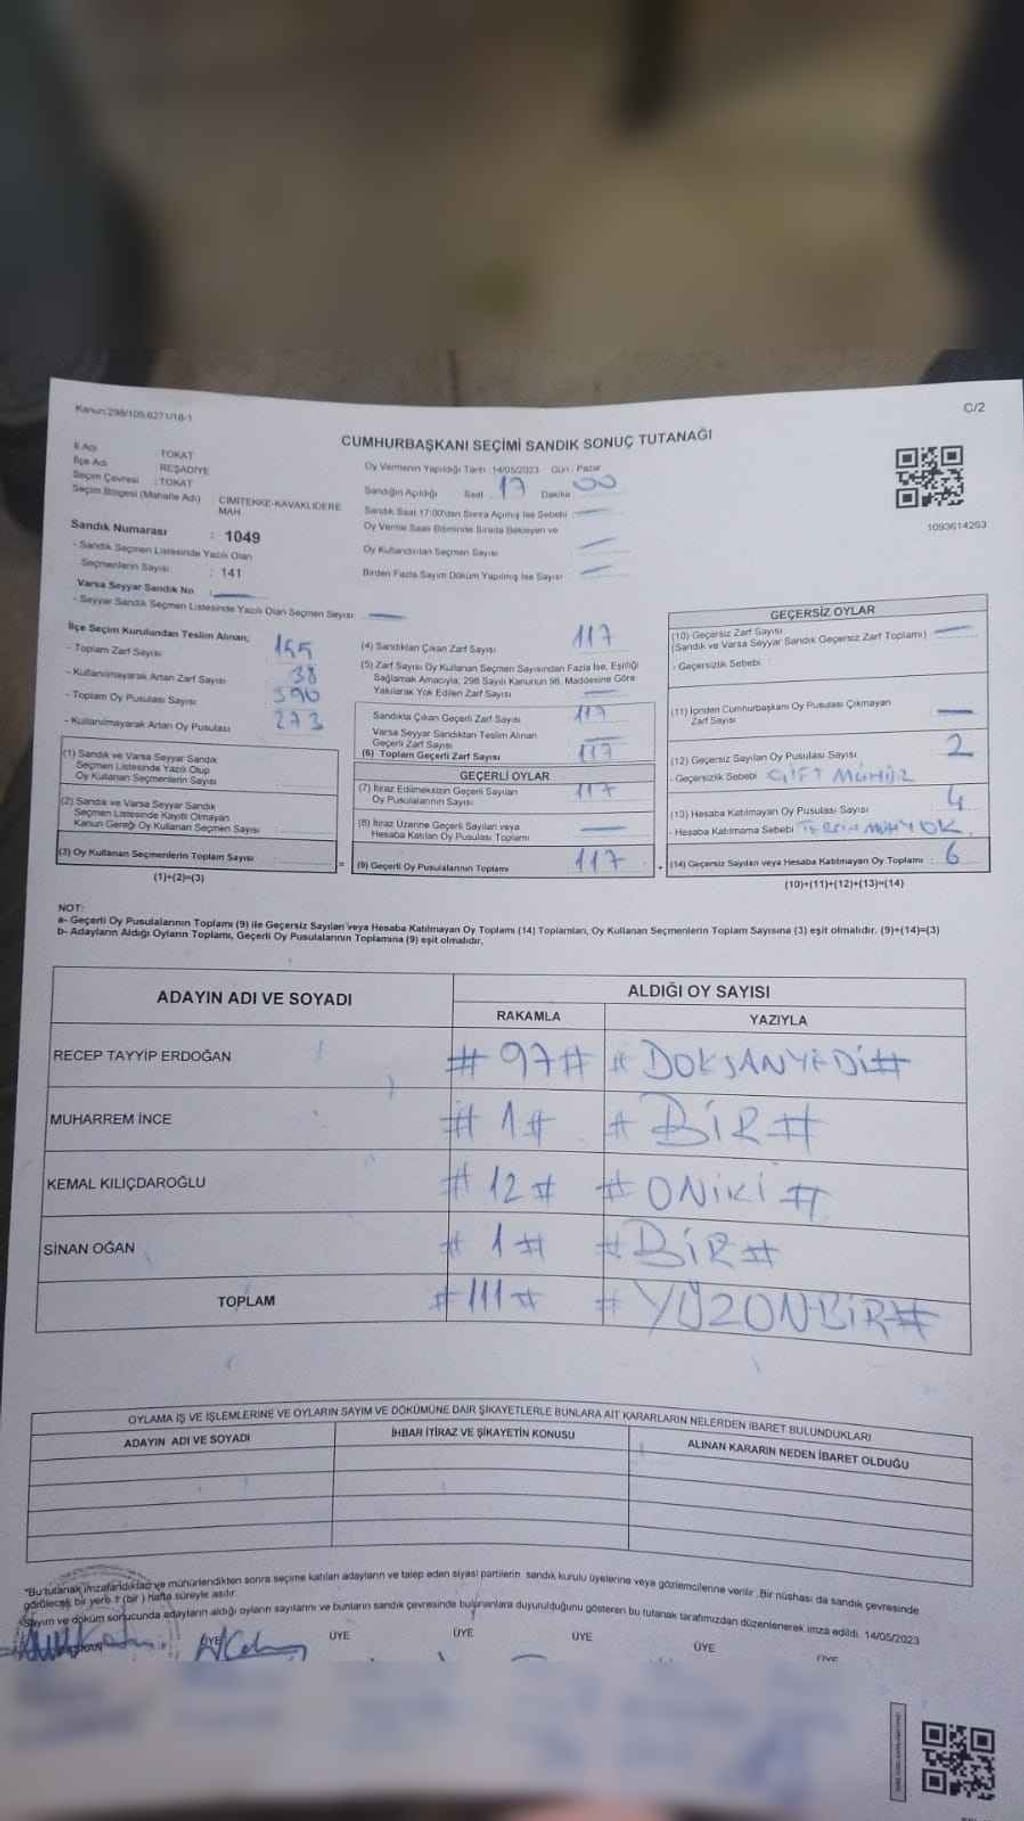 Kanun:298/105,6271/18-1
C/2
CUMHURBAŞKANI SEÇİMİ SANDIK SONUÇ TUTANAĞI
İl Adı : TOKAT
İlçe Adı : REŞADİYE
Seçim Çevresi : TOKAT
Seçim Bölgesi (Mahalle Adı) : CİMİTEKKE-KAVAKLIDERE MAH
Sandık Numarası : 1049
- Sandık Seçmen Listesinde Yazılı Olan
Seçmenlerin Sayısı : 141
Varsa Seyyar Sandık No :
- Seyyar Sandık Seçmen Listesinde Yazılı Olan Seçmen Sayısı :
Oy Vermenin Yapıldığı Tarih : 14/05/2023 Gün : Pazar
Sandığın Açıldığı Saat : 17 Dakika : 00
Sandık Saat 17:00'dan Sonra Açılmış İse Sebebi :
Oy Verme Saati Bitiminde Sırada Bekleyen ve
Oy Kullandırılan Seçmen Sayısı :
Birden Fazla Sayım Döküm Yapılmış İse Sayısı :
1093614263
İlçe Seçim Kurulundan Teslim Alınan;
- Toplam Zarf Sayısı : 155
- Kullanılmayarak Artan Zarf Sayısı : 38
- Toplam Oy Pusulası Sayısı : 390
- Kullanılmayarak Artan Oy Pusulası : 273
(1) Sandık ve Varsa Seyyar Sandık
Seçmen Listesinde Yazılı Olup
Oy Kullanan Seçmenlerin Sayısı :
(2) Sandık ve Varsa Seyyar Sandık
Seçmen Listesinde Kayıtlı Olmayan
Kanun Gereği Oy Kullanan Seçmen Sayısı :
(3) Oy Kullanan Seçmenlerin Toplam Sayısı :
(1)+(2)=(3)
(4) Sandıktan Çıkan Zarf Sayısı : 117
(5) Zarf Sayısı Oy Kullanan Seçmen Sayısından Fazla İse, Eşitliği
Sağlamak Amacıyla; 298 Sayılı Kanunun 98. Maddesine Göre
Yakılarak Yok Edilen Zarf Sayısı :
Sandıkta Çıkan Geçerli Zarf Sayısı : 117
Varsa Seyyar Sandıktan Teslim Alınan
Geçerli Zarf Sayısı :
(6) Toplam Geçerli Zarf Sayısı : 117
GEÇERLİ OYLAR
(7) İtiraz Edilmeksizin Geçerli Sayılan
Oy Pusulalarının Sayısı : 117
(8) İtiraz Üzerine Geçerli Sayılan veya
Hesaba Katılan Oy Pusulası Toplamı :
= (9) Geçerli Oy Pusulalarının Toplamı : 117
GEÇERSİZ OYLAR
(10) Geçersiz Zarf Sayısı
(Sandık ve Varsa Seyyar Sandık Geçersiz Zarf Toplamı) :
- Geçersizlik Sebebi :
(11) İçinden Cumhurbaşkanı Oy Pusulası Çıkmayan
Zarf Sayısı :
(12) Geçersiz Sayılan Oy Pusulası Sayısı : 2
- Geçersizlik Sebebi : ÇİFT MÜHÜR
(13) Hesaba Katılmayan Oy Pusulası Sayısı : 4
- Hesaba Katılmama Sebebi : MÜH YOK
+ (14) Geçersiz Sayılan veya Hesaba Katılmayan Oy Toplamı : 6
(10)+(11)+(12)+(13)=(14)
NOT:
a- Geçerli Oy Pusulalarının Toplamı (9) ile Geçersiz Sayılan veya Hesaba Katılmayan Oy Toplamı (14) Toplamları, Oy Kullanan Seçmenlerin Toplam Sayısına (3) eşit olmalıdır. (9)+(14)=(3)
b- Adayların Aldığı Oyların Toplamı, Geçerli Oy Pusulalarının Toplamına (9) eşit olmalıdır.
ADAYIN ADI VE SOYADI
ALDIĞI OY SAYISI
RAKAMLA YAZIYLA
RECEP TAYYİP ERDOĞAN #97# # DOKSANYEDİ#
MUHARREM İNCE #1# # BİR#
KEMAL KILIÇDAROĞLU #12# #ONİKİ#
SİNAN OĞAN #1# #BİR#
TOPLAM #111# #YÜZONBİR#
OYLAMA İŞ VE İŞLEMLERİNE VE OYLARIN SAYIM VE DÖKÜMÜNE DAİR ŞİKAYETLERLE BUNLARA AİT KARARLARIN NELERDEN İBARET BULUNDUKLARI
ADAYIN ADI VE SOYADI İHBAR İTİRAZ VE ŞİKAYETİN KONUSU ALINAN KARARIN NEDEN İBARET OLDUĞU
*Bu tutanak imzalandıktan ve mühürlendikten sonra seçime katılan adayların ve talep eden siyasi partilerin sandık kurulu üyelerine veya gözlemcilerine verilir. Bir nüshası da sandık çevresinde
görülecek bir yere 1 (bir) hafta süreyle asılır.
Sayım ve döküm sonucunda adayların aldığı oyların sayılarını ve bunların sandık çevresinde bulunanlara duyurulduğunu gösteren bu tutanak tarafımızdan düzenlenerek imza edildi. 14/05/2023
ÜYE ÜYE ÜYE ÜYE ÜYE ÜYE